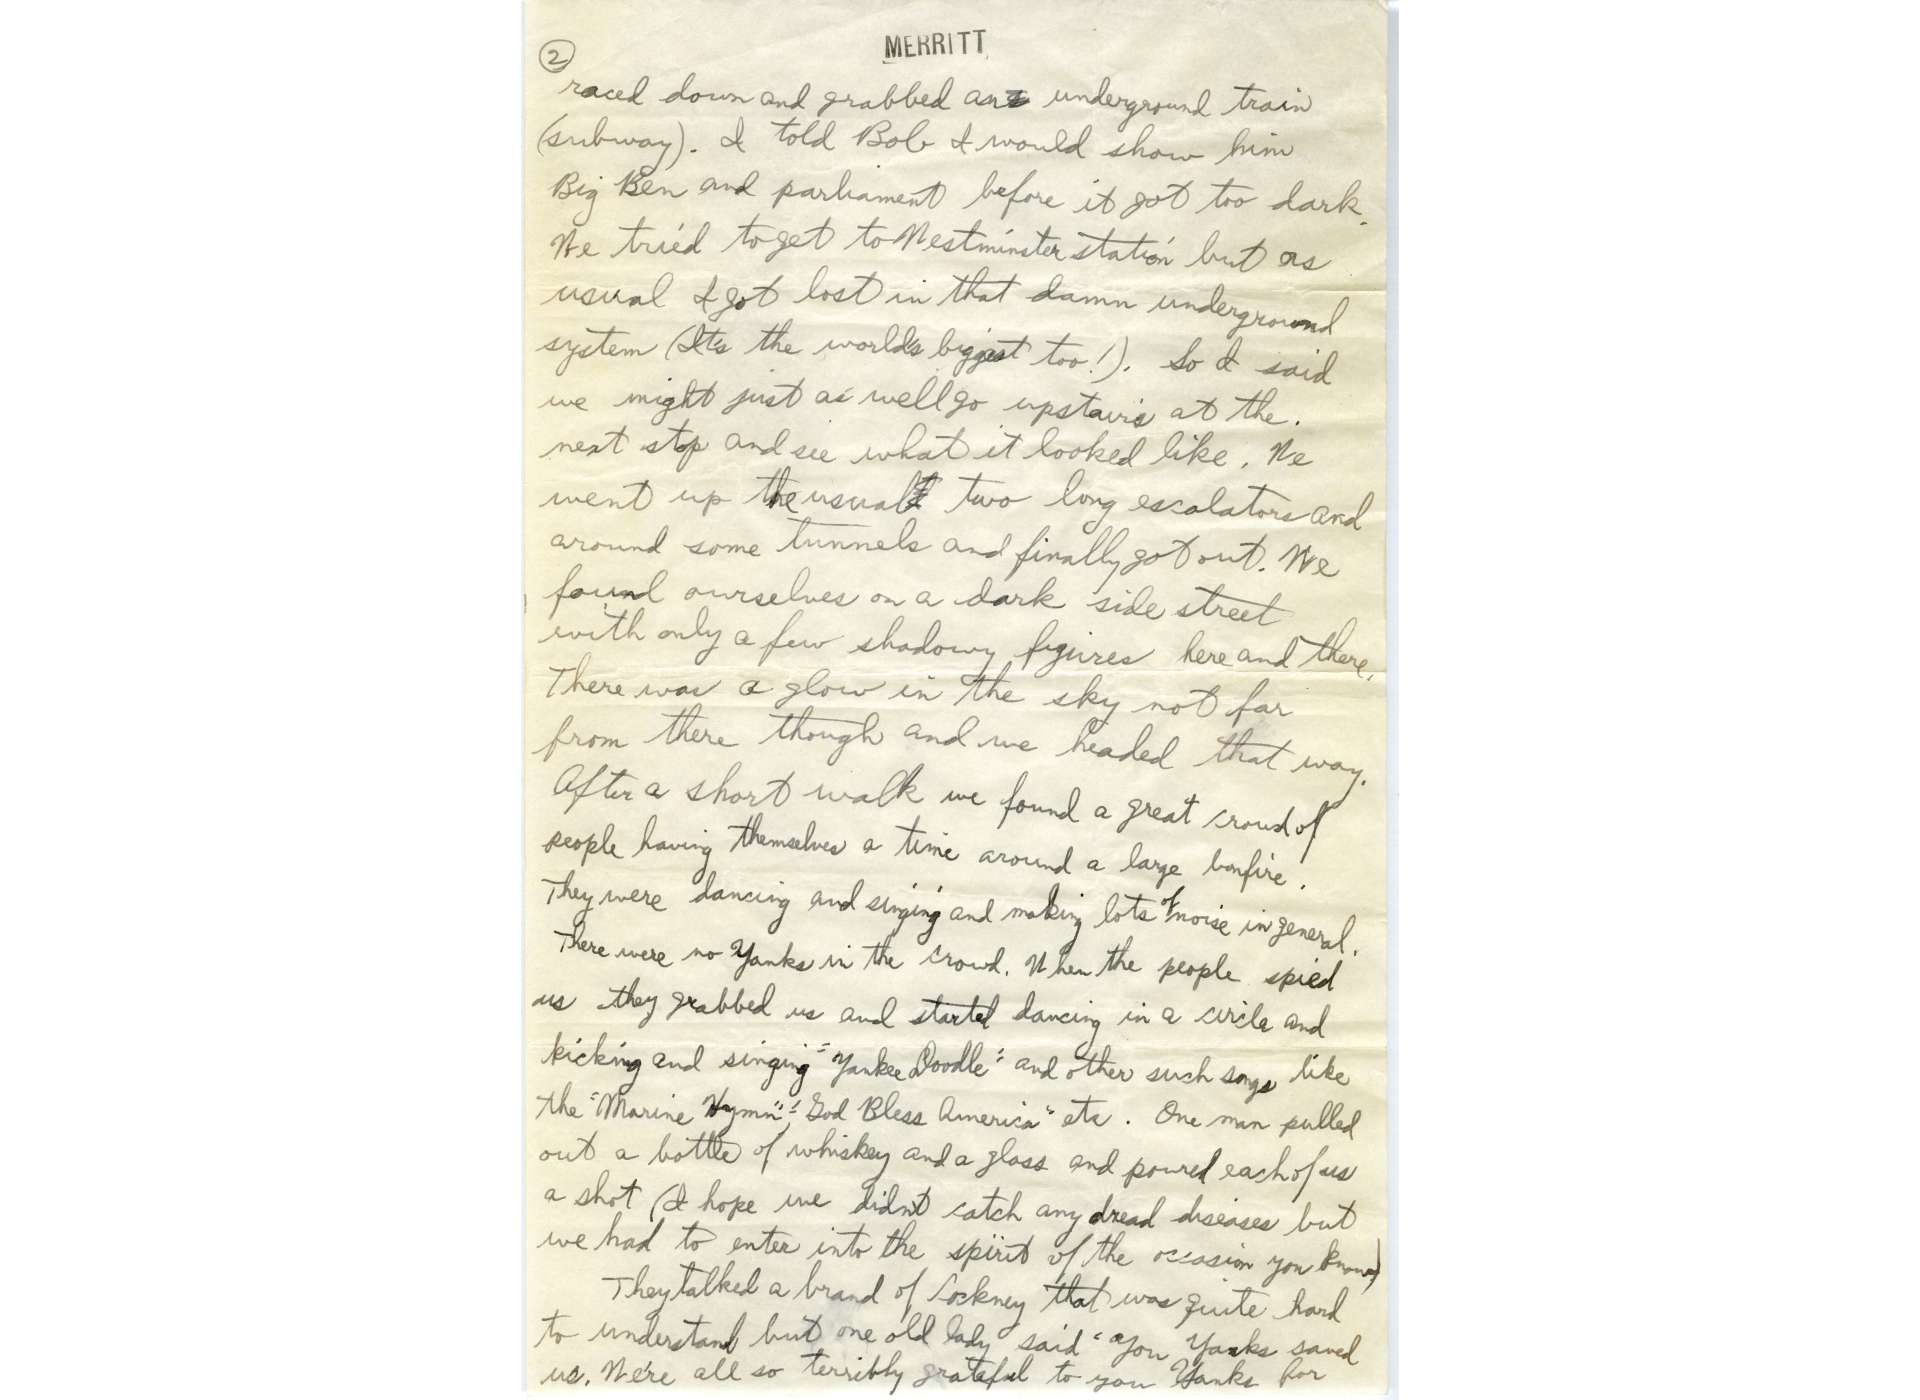 2
MERRITT
raced down and grabbed an underground train
(subway). I told Bob I would show him
Big Ben and parliament before it got too dark.
We tried to get to Westminster station but as
usual I got lost in that damn underground
system (It's the world's biggest too!). So I said
we might just as well go upstairs at the.
next stop and see what it looked like. We
went up the usual two long escalators and
around some tunnels and finally got out. We
found ourselves on a dark side street
with only a few shadowy figures here and there.
There was a glow in the sky not far
from there though and we headed that way.
After a short walk we found a great crowd of
people having themselves a time around a large bonfire.
They were dancing and singing and making lots of noise in general.
There were no Yanks in the crowd. When the people spied
us they grabbed us and started dancing in a circle and
kicking and singing "Yankee Doodle" and other such songs like
the "Marine Hymn", "God Bless America" etc. One man pulled
out a bottle of whiskey and a glass and poured each of us
a shot (I hope we didn't catch any dread diseases but
we had to enter into the spirit of the occasion you know)
They talked a brand of Cockney that was quite hard
to understand but one old lady said "You Yanks saved
us. We're all so terribly grateful to you Yanks for